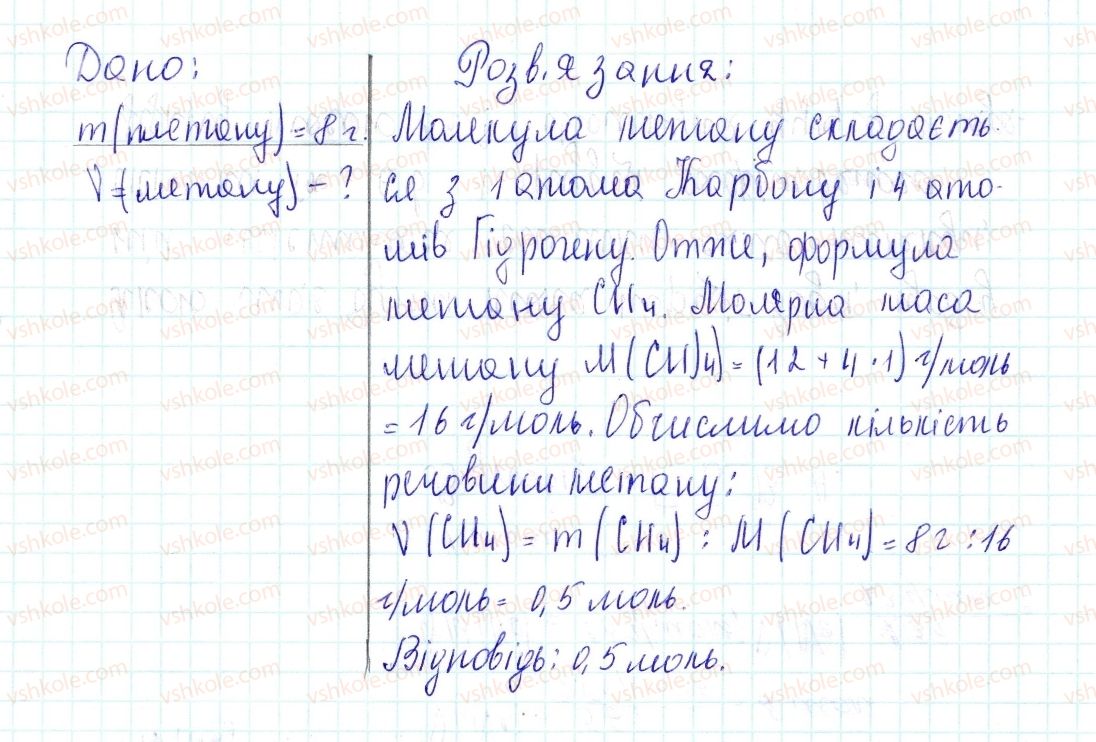 Дано:
m(метану)=8 г.
V=(метану)-?
Розв.язання:
Молекула метану складаєть-
ся з 1 атома Карбону і 4 ато-
мів Гідрогену. Отже, формула
метану CH4. Молярна маса
метану M(CH)4)=(12+4·1) г/моль
=16 г/моль. Обчислимо кількість
речовини метану:
V(CH4)=m(CH4):M(CH4)=8 г:16
г/моль=0,5 моль.
Відповідь: 0,5 моль.
vshkole.com